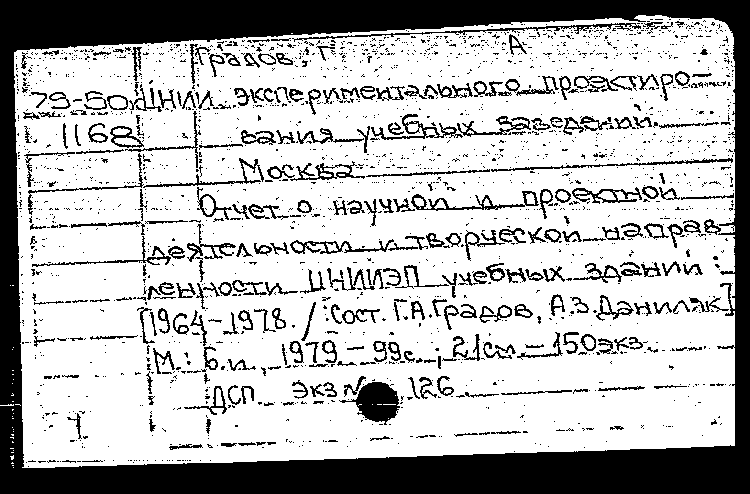 Градов, Г А
79-50к ЦНИИ экспериментального проектиро-
1168 вания учебных заведений.
Москва
Отчет о научной и проектной
деятельности и творческой направ-
ленности ЦНИИЭП учебных зданий:
[1964-1978. / Сост. Г.А.Градов, А.З.Даниляк]
М.: Б.и, 1979 – 99с.; 21см. – 150экз.
ДСП. Экз № 126.